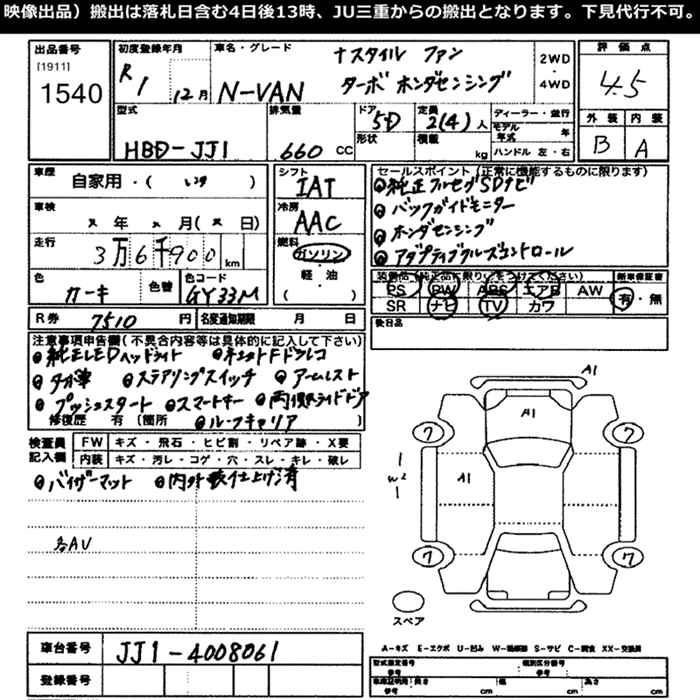 映像出品）搬出は落札日含む4日後13時、JU三重からの搬出となります。下見代行不可。
出品番号
[1911]
1540
初度登録年月
R1
12月
車名・グレード
N-VAN
＋スタイル ファン
ターボ ホンダセンシング
2WD
・
4WD
評価点
4.5
外装 内装
B A
型式
HBD-JJ1
排気量
660 CC
ドア
5D
形状
定員
2(4)人
積載
kg
ディーラー・並行
モデル年式 年
ハンドル 左・右
車歴
自家用・( )
車検
年 月( 日)
走行
3万6千900km
色
カーキ
色替
色コード
GY33M
シフト
IAT
冷房
AAC
燃料
ガソリン
・
軽・油
( )
セールスポイント（正常に機能するものに限ります）
純正フルセグSDナビ
バックガイドモニター
ホンダセンシング
アダプティブクルーズコントロール
装備品（純正品に限り○をつけてください）
PS PW ABS エアB AW
SR ナビ TV カワ
新車保証書
有・無
後日品
R券 7510円
名変通知期限 月 日
注意事項申告欄(不具合内容等は具体的に記入して下さい)
純正LEDヘッドライト ドラレコ
ステアリングスイッチ アームレスト
プッシュスタート スマートキー 両側スライドドア
修復歴 有 〔箇所 〕
ルーフキャリア
検査員記入欄
FW キズ・飛石・ヒビ割・リペア跡・X要
内装 キズ・汚レ・コゲ・穴・スレ・キレ・破レ
バイザーマット 内外装仕上げ済
各AU
A1
A1
A1
7
7
7
7
W2
スペア
車台番号
JJ1-4008061
登録番号
A-キズ E-エクボ U-凹み W-補修跡 S-サビ C-腐食 XX-交換済
型式指定番号
参考
類別区分番号
参考
車庫証明用
参考
長さ cm
幅 cm
高さ cm